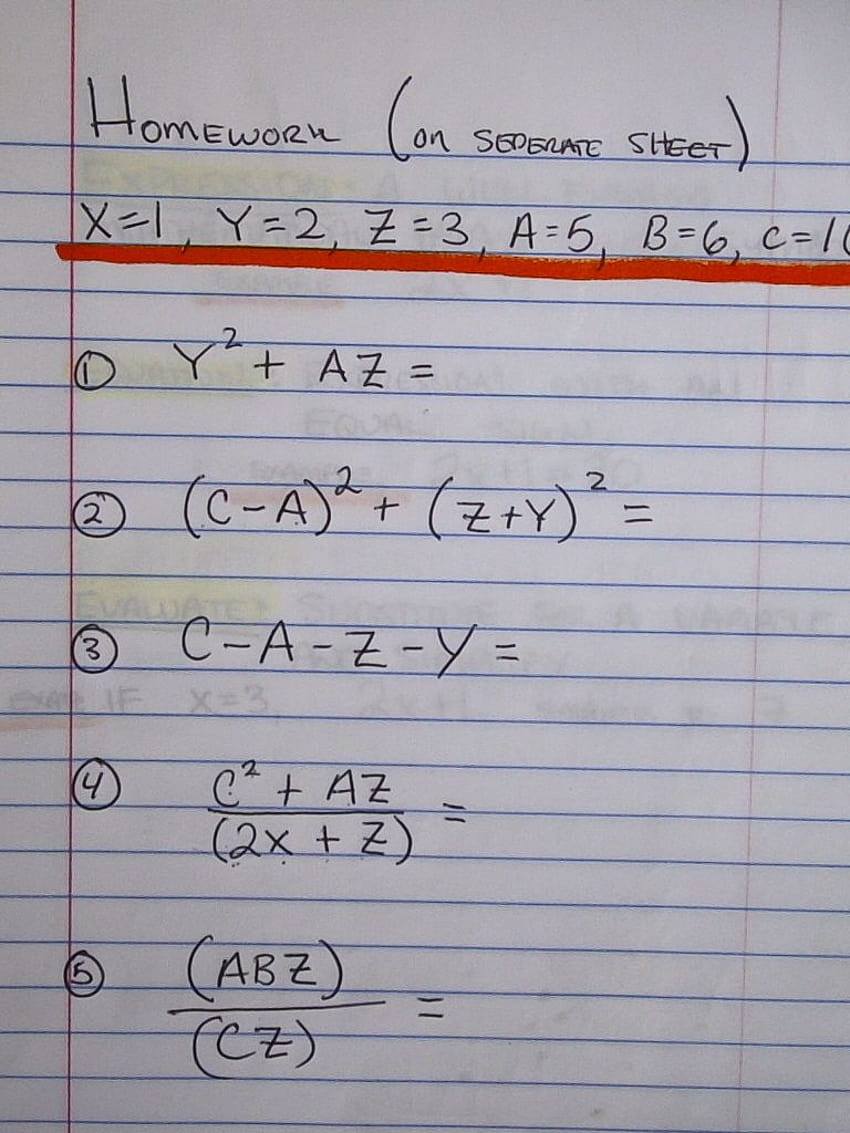 Homework (on seperate sheet)
X=1, Y=2, Z=3, A=5, B=6, C=10
① Y² + AZ =
② (C-A)² + (Z+Y)² =
③ C-A-Z-Y =
④ C² + AZ
(2x + Z) =
⑤ (ABZ)
(CZ) =